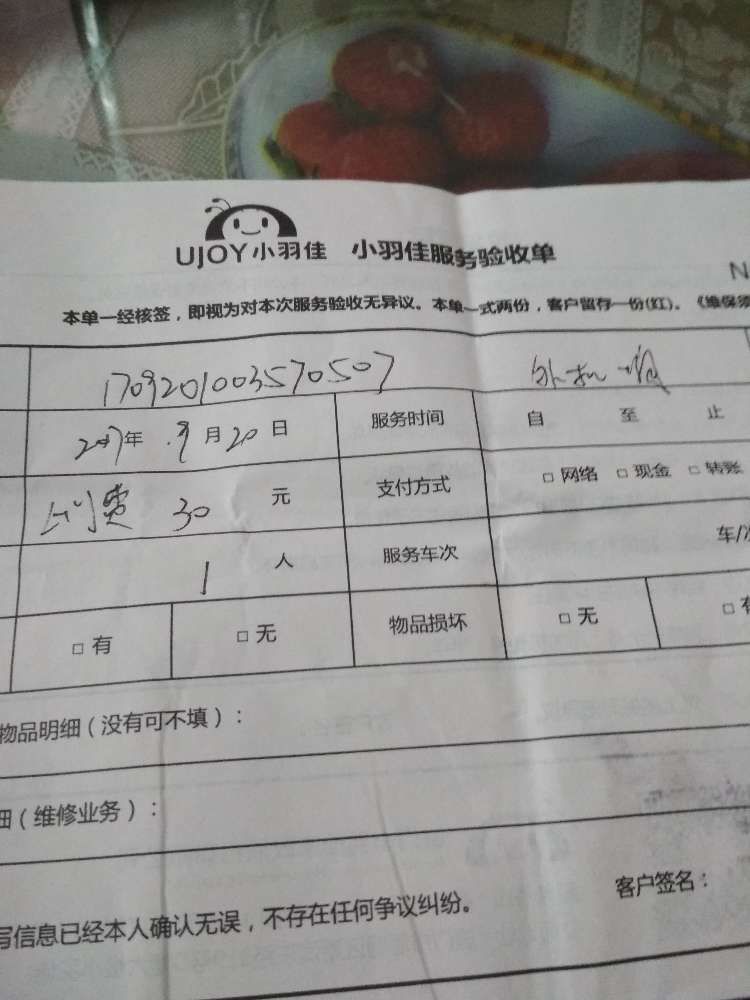 UJOY小羽佳 小羽佳服务验收单
N
本单一经核签，即视为对本次服务验收无异议。本单一式两份，客户留存一份(红)。《维保须
1709201003570507
2017年 9月20日 服务时间 自 至 止
费 30 元 支付方式 □ 网络 □ 现金 □ 转账
1 人 服务车次 车/次
□ 有 □ 无 物品损坏 □ 无 □ 有
物品明细（没有可不填）：
细（维修业务）：
写信息已经本人确认无误，不存在任何争议纠纷。 客户签名：